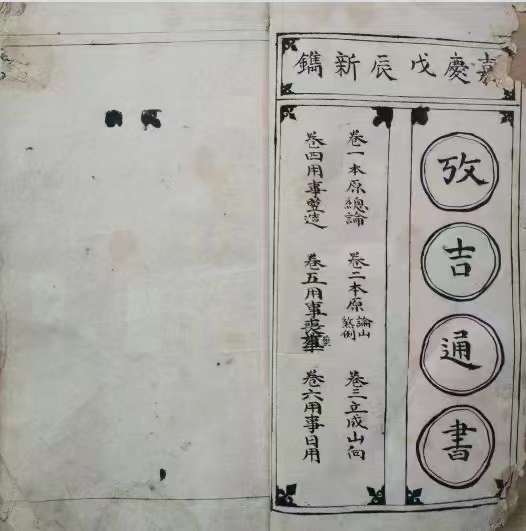 嘉慶戊辰新鐫
攷吉通書
卷一本原總論
卷二本原論山
煞例
卷三立成山向
卷四用事造
卷五用事喪
卷六用事日用